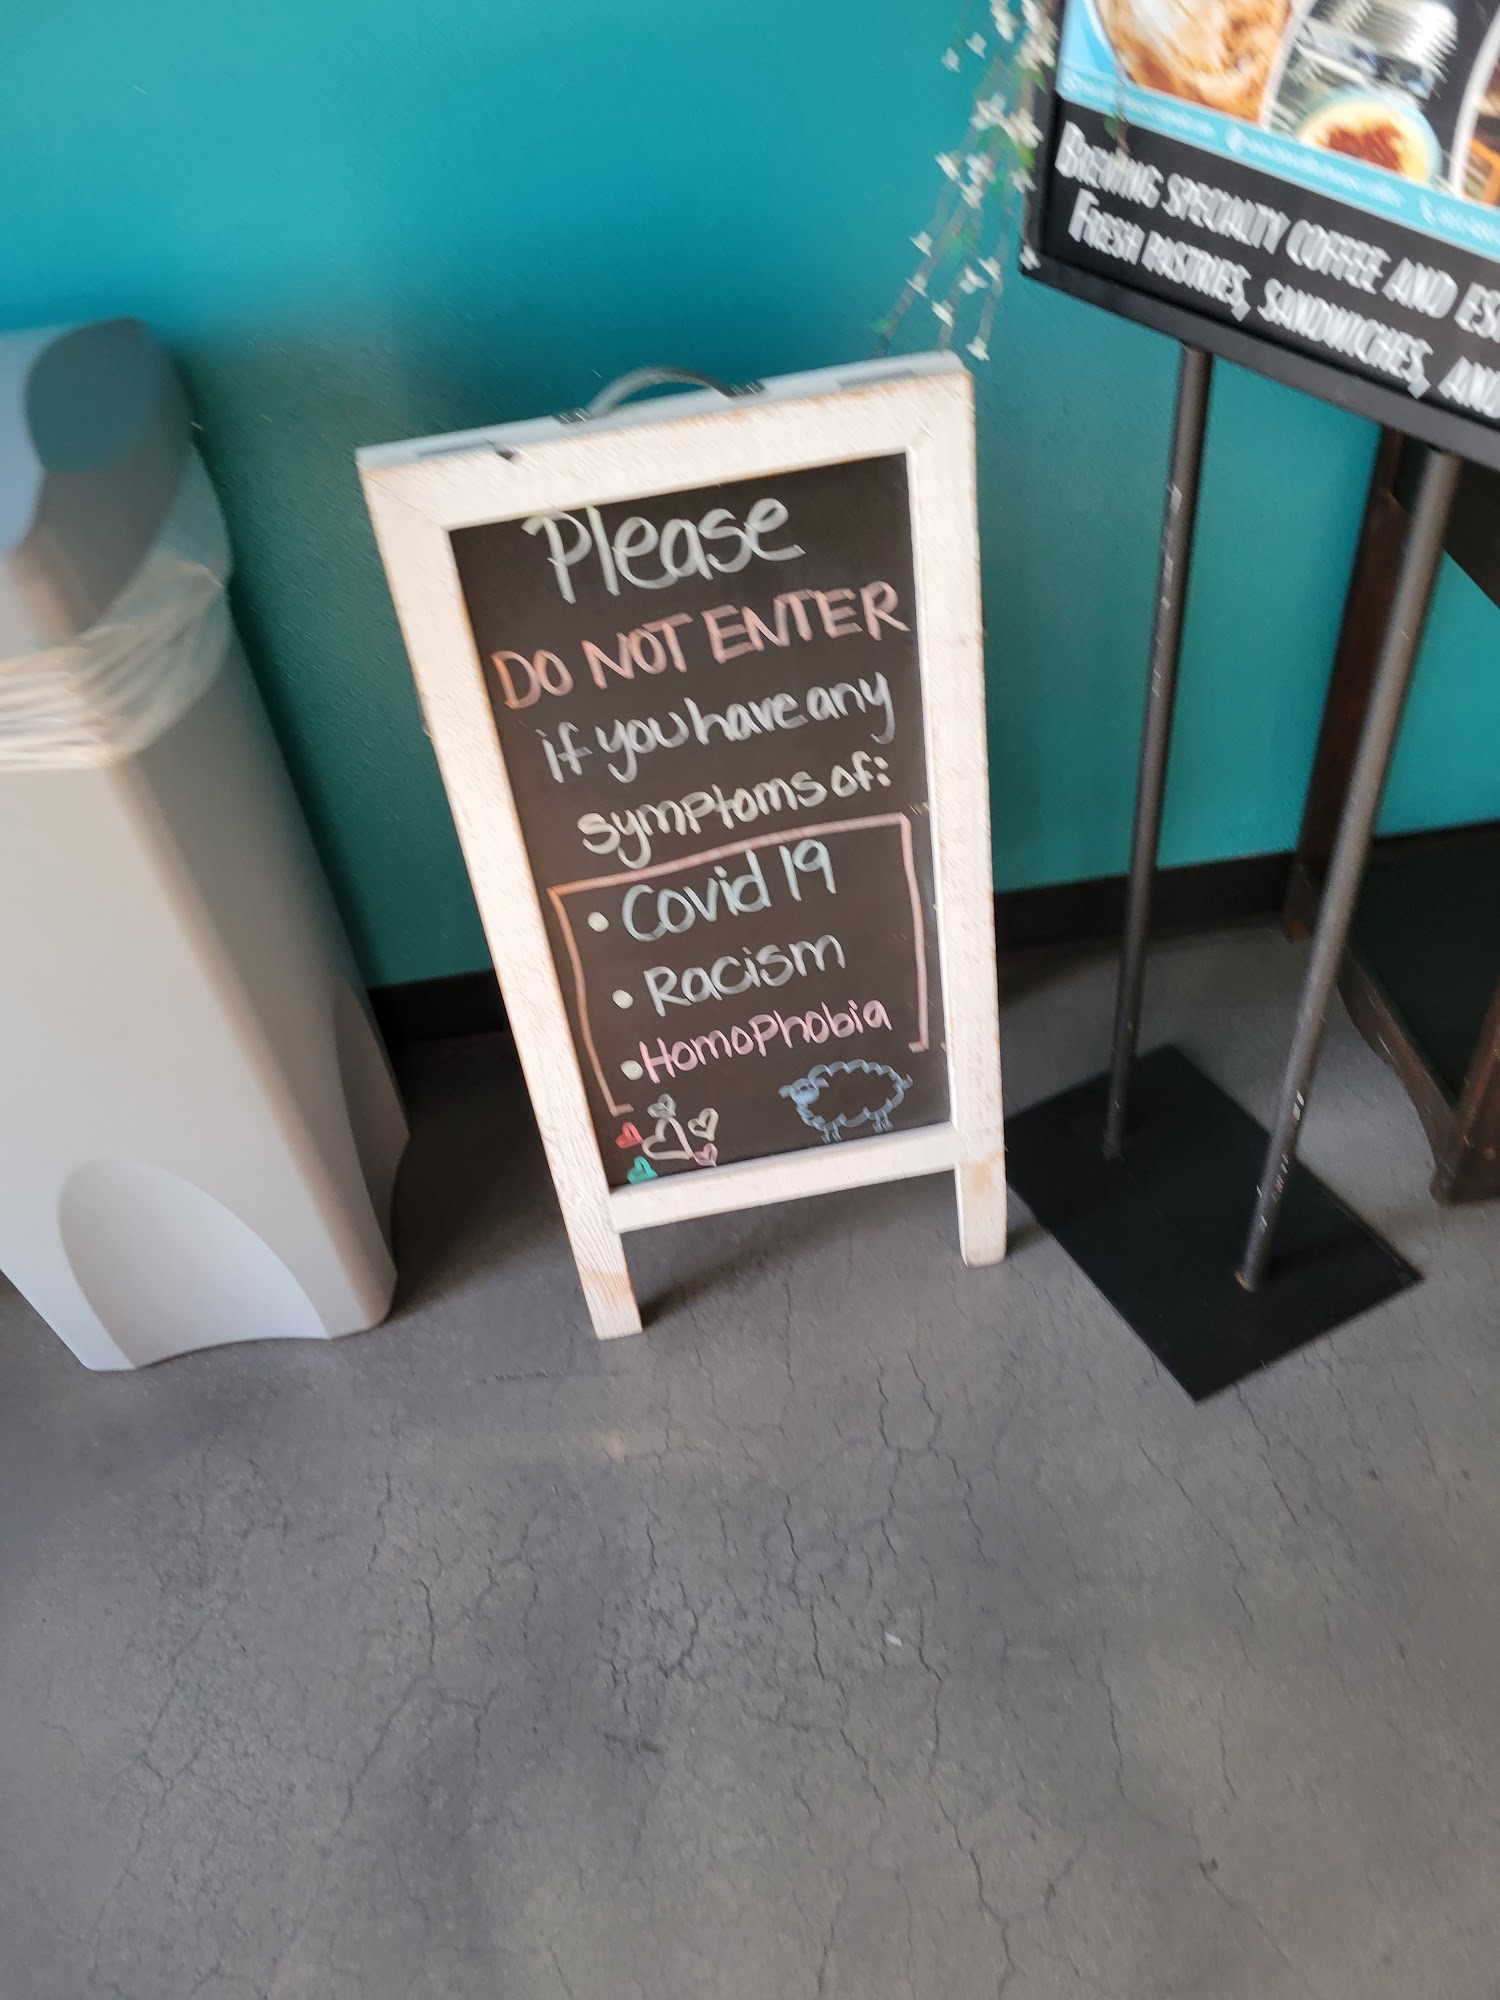 Please
DO NOT ENTER
if you have any
symptoms of:
• Covid 19
• Racism
• Homophobia
BREWING SPECIALTY COFFEE AND
FRESH PASTRIES, SANDWICHES, AND